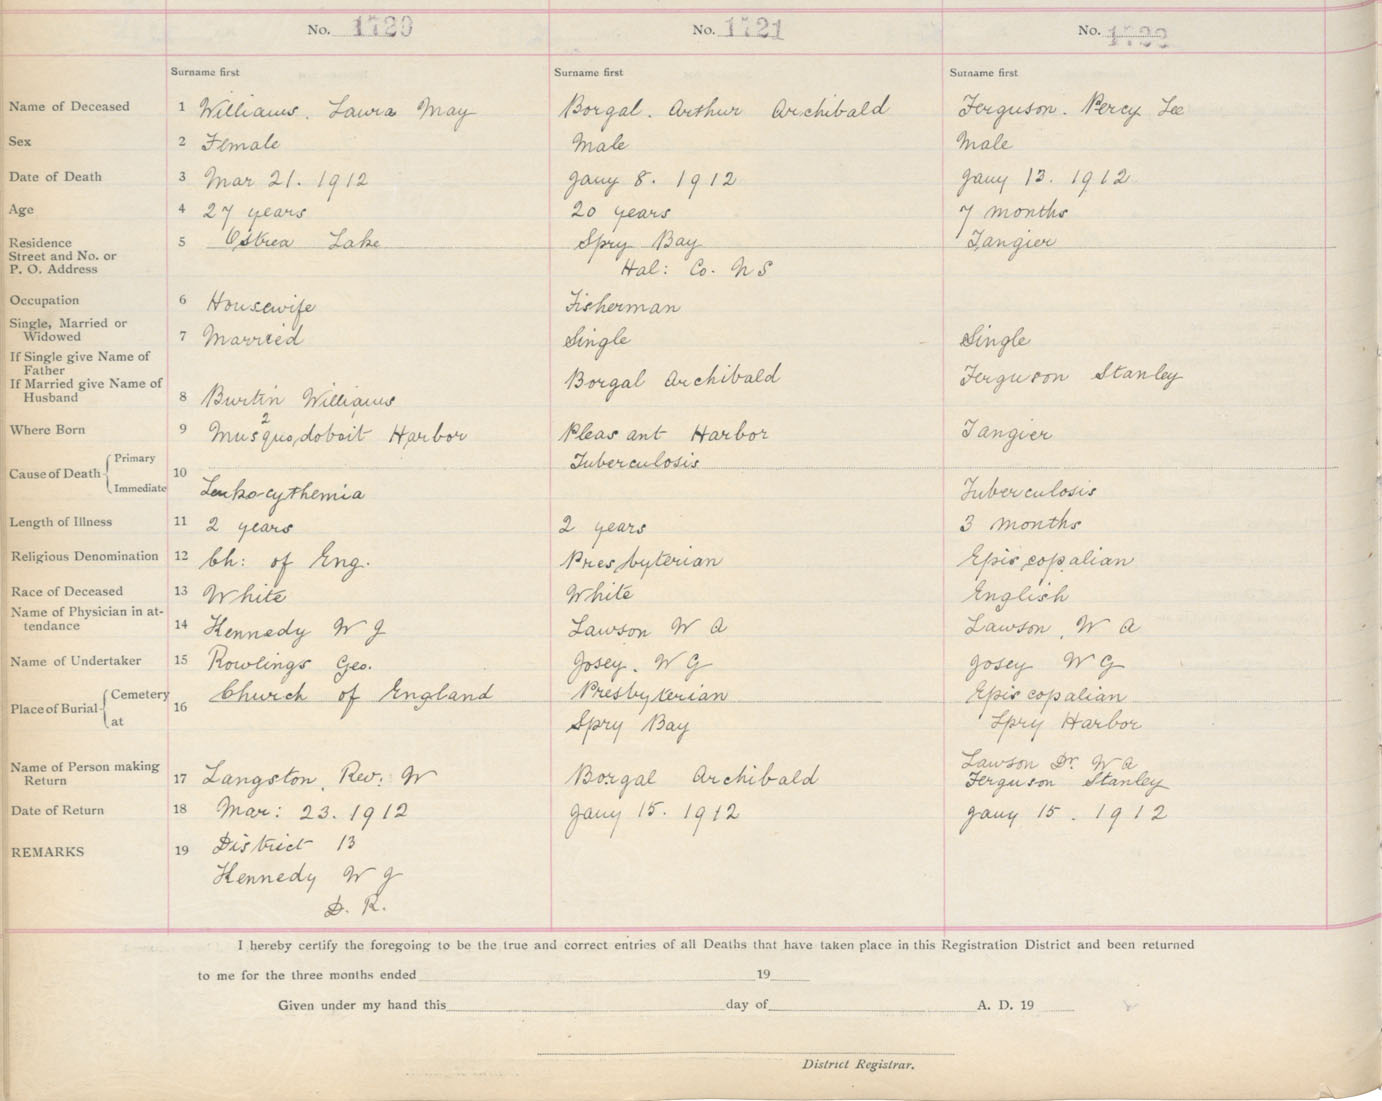 No. 1720 No. 1721 No. 1722
Surname first Surname first Surname first
Name of Deceased 1 Williams. Laura May Borgal. Arthur Archibald Ferguson. Percy Lee
Sex 2 Female Male Male
Date of Death 3 Mar 21. 1912 Jany 8. 1912 Jany 13. 1912
Age 4 27 years 20 years 7 months
Residence 5 Ostrea Lake Spry Bay Tangier
Street and No. or
P. O. Address Hal: Co. N S
Occupation 6 Housewife Fisherman
Single, Married or
Widowed 7 Married Single Single
If Single give Name of
Father Borgal Archibald Ferguson Stanley
If Married give Name of
Husband 8 Burtin Williams
2
Where Born 9 Musquodoboit Harbor Pleasant Harbor Tangier
Primary Tuberculosis
Cause of Death 10
Immediate Leukocythemia Tuberculosis
Length of Illness 11 2 years 2 years 3 months
Religious Denomination 12 Ch: of Eng. Presbyterian Episcopalian
Race of Deceased 13 White White English
Name of Physician in at-
tendance 14 Kennedy W J Lawson W A Lawson, W A
Name of Undertaker 15 Rowlings Geo. Josey. W G Josey W G
Cemetery Church of England Presbyterian Episcopalian
Place of Burial 16
at Spry Bay Spry Harbor
Name of Person making Lawson Dr. W A
Return 17 Langston, Rev: W Borgal Archibald Ferguson Stanley
Date of Return 18 Mar: 23. 1912 Jany 15. 1912 Jany 15. 1912
REMARKS 19 District 13
Kennedy W J
D. R.
I hereby certify the foregoing to be the true and correct entries of all Deaths that have taken place in this Registration District and been returned
to me for the three months ended 19
Given under my hand this day of A. D. 19
District Registrar.